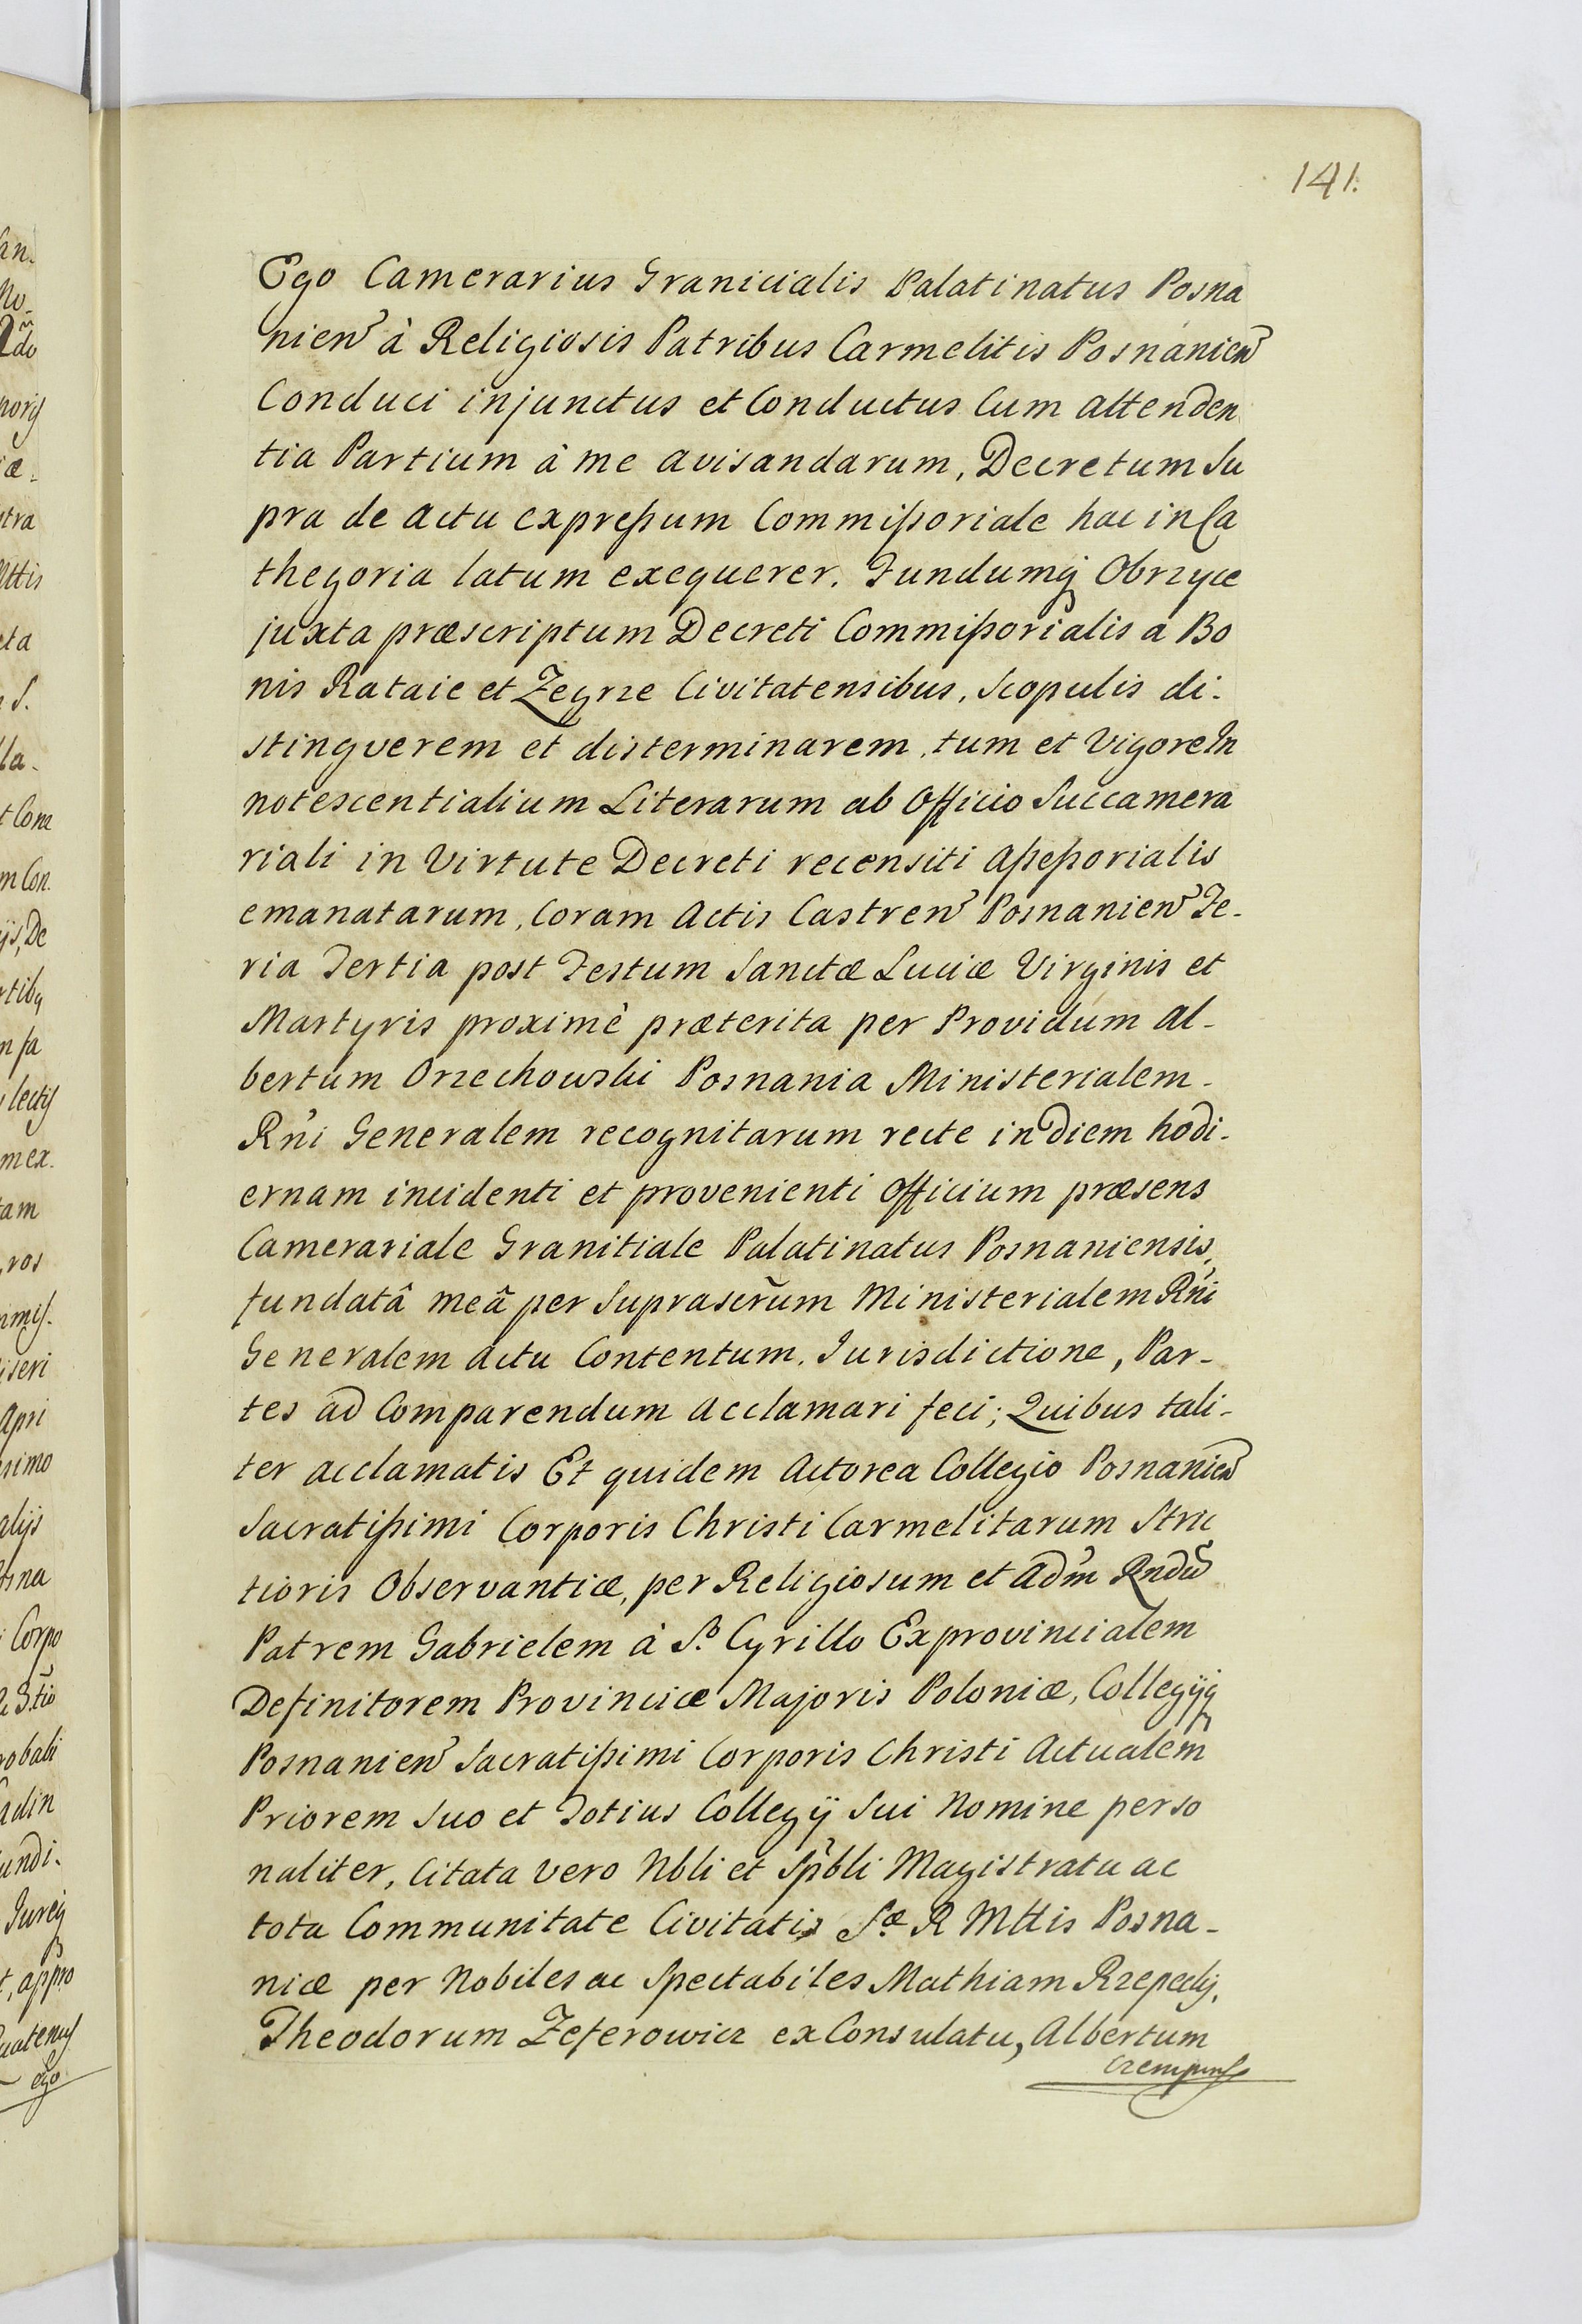 141.
Ego Camerarius Granicialis Palatinatus Posna
nien̄ à Religiosis Patribus Carmelitis Posnanien̄
Conduci injunctus et Conductus Cum attenden
tia Partium à me avisandarum, Decretum Su
pra de actu expressum Commissoriale hac in Ca
thegoria latum exequerer. Fundumq̨ Obrzyce
juxta præscriptum Decreti Commissorialis a Bo
nis Rataie et Zegrze Civitatensibus, Scopulis di-
stingverem et disterminarem, tum et Vigore In
notescentialium Literarum ab Officio Succamera
riali in Virtute Decreti recensiti Assessorialis
emanatarum, Coram Actis Castren̄ Posnanien̄ Fe-
ria Tertia post Festum Sanctæ Luciæ Virginis et
Martyris proximè præterita per Providum Al-
bertum Orzechowski Posnania Ministerialem-
Rn̄i Generalem recognitarum recte in Diem hodi-
ernam incidenti et provenienti Officium præsens
Camerariale Granitiale Palatinatus Posnaniensis,
fundatâ meâ per Suprascr̄um Ministerialem Rn̄i
Generalem actu Contentum, Jurisdictione, Par-
tes ad Comparendum acclamari feci; Quibus tali-
ter acclamatis Et quidem Actorea Collegio Posnanien̄
Sacratissimi Corporis Christi Carmelitarum Stric
tioris Observantiæ, per Religiosum et Adm̄ Rndū
Patrem Gabrielem à S.º Cyrillo Exprovincialem
Definitorem Provinciæ Majoris Poloniæ, Collegijq̨
Posnanien̄ Sacratissimi Corporis Christi Actualem
Priorem Suo et Totius Collegij Sui Nomine perso
naliter, Citata vero Nbli et Sp̄bli Magistratu ac
tota Communitate Civitatis S.æ R Mttis Posna-
niæ per Nobiles ac Spectabiles Mathiam Rzepecky,
Theodorum Zeferowicz ex Consulatu, Albertum